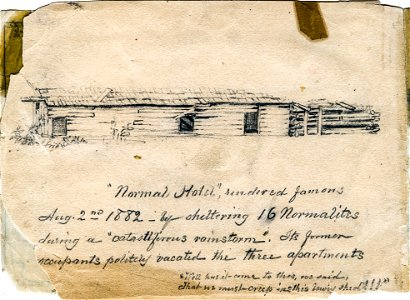 "Normal Hotel", rendered famous
Aug. 2nd 1882 - by sheltering 16 Normalites
during a "catastiferous rainstorm". Its former
occupants politely vacated the three apartments
"Oh has it come to this, we said,
that we must creep in this lowly shed!!!"